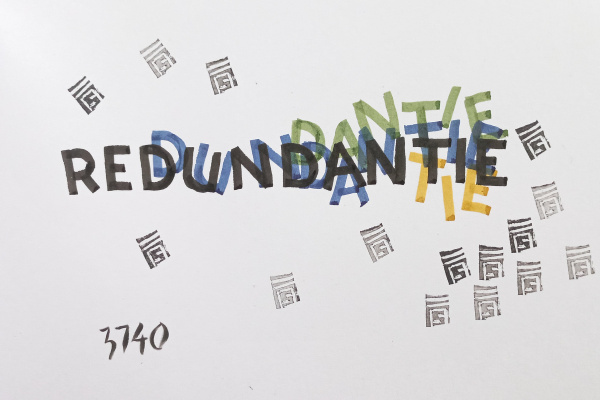 DANTIE
DUNDANTIE
REDUNDANTIE
TIE
3740